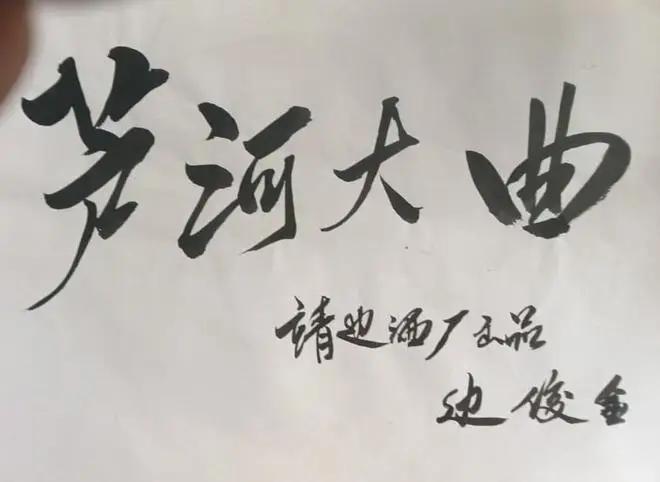 芦河大曲
靖边酒厂出品
边俊金